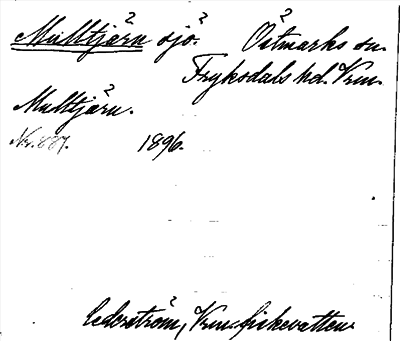 Multtjärn sjö. Östmarks sn.
Fryksdals hd. Vrm.
Multtjärn.
Nr. 887. 1896.
Cederström, Vrm. fiskevatten